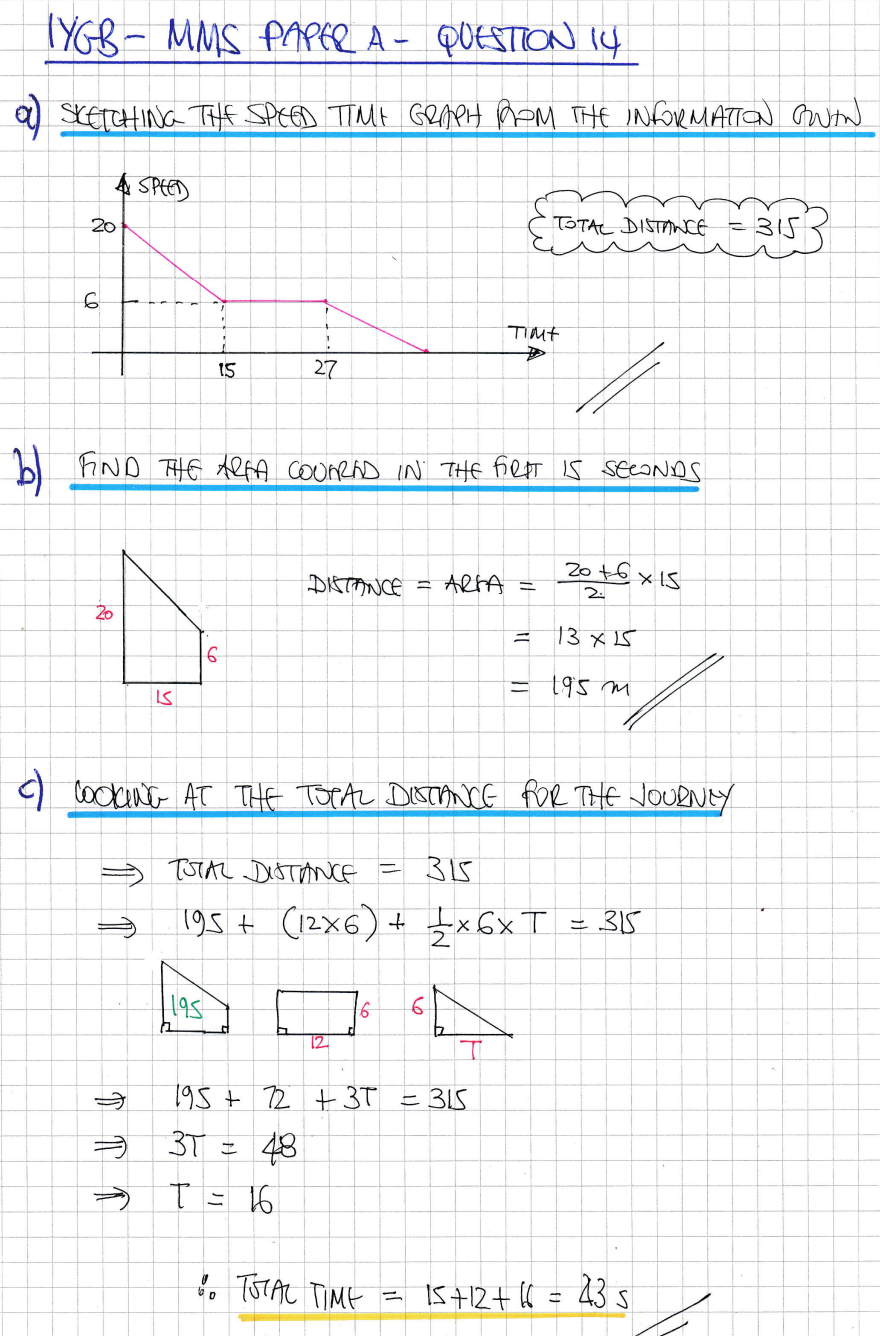 IYGB - MMS PAPER A - QUESTION 14
a) SKETCHING THE SPEED TIME GRAPH FROM THE INFORMATION GIVEN
SPEED
20
TOTAL DISTANCE = 315
6
TIME
15
27
b) FIND THE AREA COVERED IN THE FIRST 15 SECONDS
20
6
15
DISTANCE = AREA = \frac{20+6}{2} × 15
= 13 × 15
= 195 m
c) LOOKING AT THE TOTAL DISTANCE FOR THE JOURNEY
⟹ TOTAL DISTANCE = 315
⟹ 195 + (12×6) + \frac{1}{2} × 6 × T = 315
195
6
12
6
T
⟹ 195 + 72 + 3T = 315
⟹ 3T = 48
⟹ T = 16
∴ TOTAL TIME = 15+12+16 = 43 s